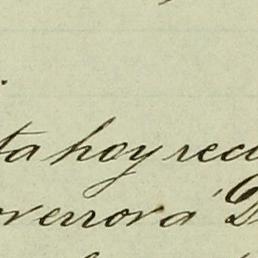 ta hoy reci
overrora D